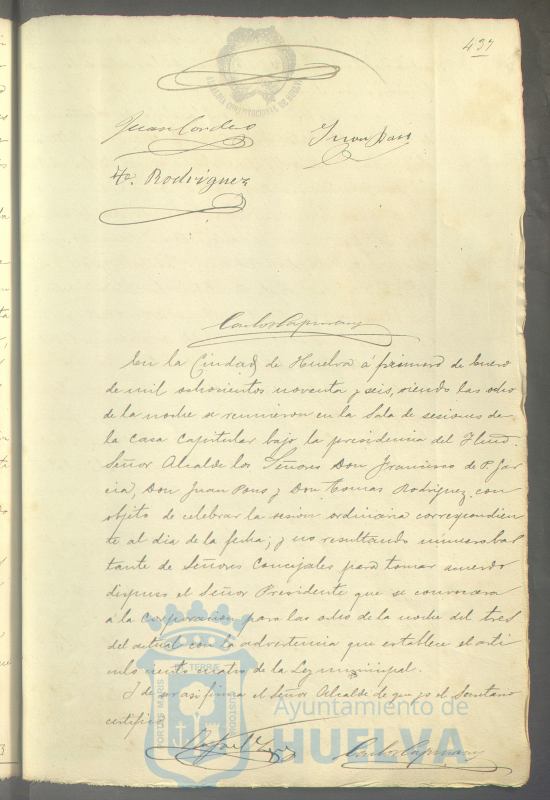 437
Juan Cordero
Juan Pons
To. Rodriguez
Carlos Capmany
En la Ciudad de Huelva á primero de Enero
de mil ochocientos noventa y seis, siendo las ocho
de la noche se reunieron en la Sala de sesiones de
la Casa Capitular bajo la presidencia del Iltmo.
Señor Alcalde los Señores Don Francisco de P. Gar
cia, Don Juan Pons y Don Tomas Rodriguez, con
objeto de celebrar la sesion ordinaria correspondien
te al dia de la fecha; y no resultando número bas
tante de Señores Concejales para tomar acuerdo
dispuso el Señor Presidente que se convocara
á la Corporacion para las ocho de la noche del tres
del actual con la advertencia que establece el arti
culo ciento cuatro de la Ley municipal.
Y de ser asi firma el Señor Alcalde de que yo el Secretario
certifico.
Carlos Capmany
PORTUS MARIS
TERRÆ
CUSTODIA
Ayuntamiento de
HUELVA